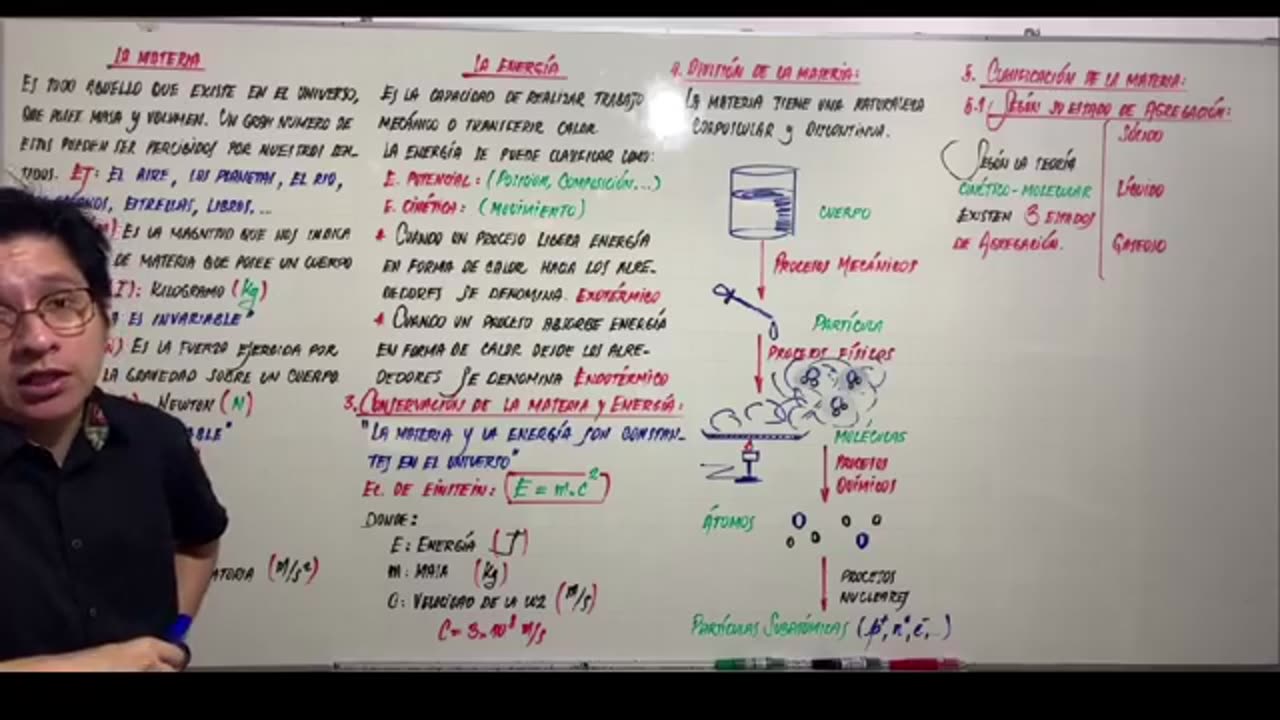 LA MATERIA
ES TODO AQUELLO QUE EXISTE EN EL UNIVERSO,
QUE POSEE MASA Y VOLUMEN. UN GRAN NUMERO DE
ESTOS PUEDEN SER PERCIBIDOS POR NUESTROS SEN-
TIDOS. EJ: EL AIRE, LOS PLANETAS, EL RIO,
ESTRELLAS, LIBROS...
ES LA MAGNITUD QUE NOS INDICA
DE MATERIA QUE POSEE UN CUERPO
KILOGRAMO (Kg)
ES INVARIABLE"
ES LA FUERZA EJERCIDA POR
LA GRAVEDAD SOBRE UN CUERPO
NEWTON (N)
(m/s²)
LA ENERGÍA
ES LA CAPACIDAD DE REALIZAR TRABAJO
MECÁNICO O TRANSFERIR CALOR
LA ENERGÍA SE PUEDE CLASIFICAR COMO:
E. POTENCIAL: (POSICION, COMPOSICIÓN...)
E. CINÉTICA: (MOVIMIENTO)
* CUANDO UN PROCESO LIBERA ENERGÍA
EN FORMA DE CALOR HACIA LOS ALRE-
DEDORES SE DENOMINA. EXOTÉRMICO
* CUANDO UN PROCESO ABSORBE ENERGÍA
EN FORMA DE CALOR DESDE LOS ALRE-
DEDORES SE DENOMINA ENDOTÉRMICO
3. CONSERVACIÓN DE LA MATERIA Y ENERGÍA:
"LA MATERIA Y LA ENERGÍA SON CONSTAN-
TES EN EL UNIVERSO"
EC. DE EINSTEIN: E = m.c²
DONDE:
E: ENERGÍA (J)
m: MASA (Kg)
C: VELOCIDAD DE LA LUZ (m/s)
C = 3×10⁸ m/s
4. DIVISIÓN DE LA MATERIA:
LA MATERIA TIENE UNA NATURALEZA
CORPUSCULAR Y DISCONTINUA.
CUERPO
PROCESOS MECÁNICOS
PARTÍCULA
PROCESOS FÍSICOS
MOLÉCULAS
PROCESOS
QUÍMICOS
ÁTOMOS
PROCESOS
NUCLEARES
PARTÍCULAS SUBATÓMICAS (p⁺, n°, e⁻, ..)
5. CLASIFICACIÓN DE LA MATERIA:
5.1 SEGÚN SU ESTADO DE AGREGACIÓN:
SEGÚN LA TEORÍA
CINÉTICO-MOLECULAR
EXISTEN 3 ESTADOS
DE AGREGACIÓN.
SÓLIDO
LÍQUIDO
GASEOSO